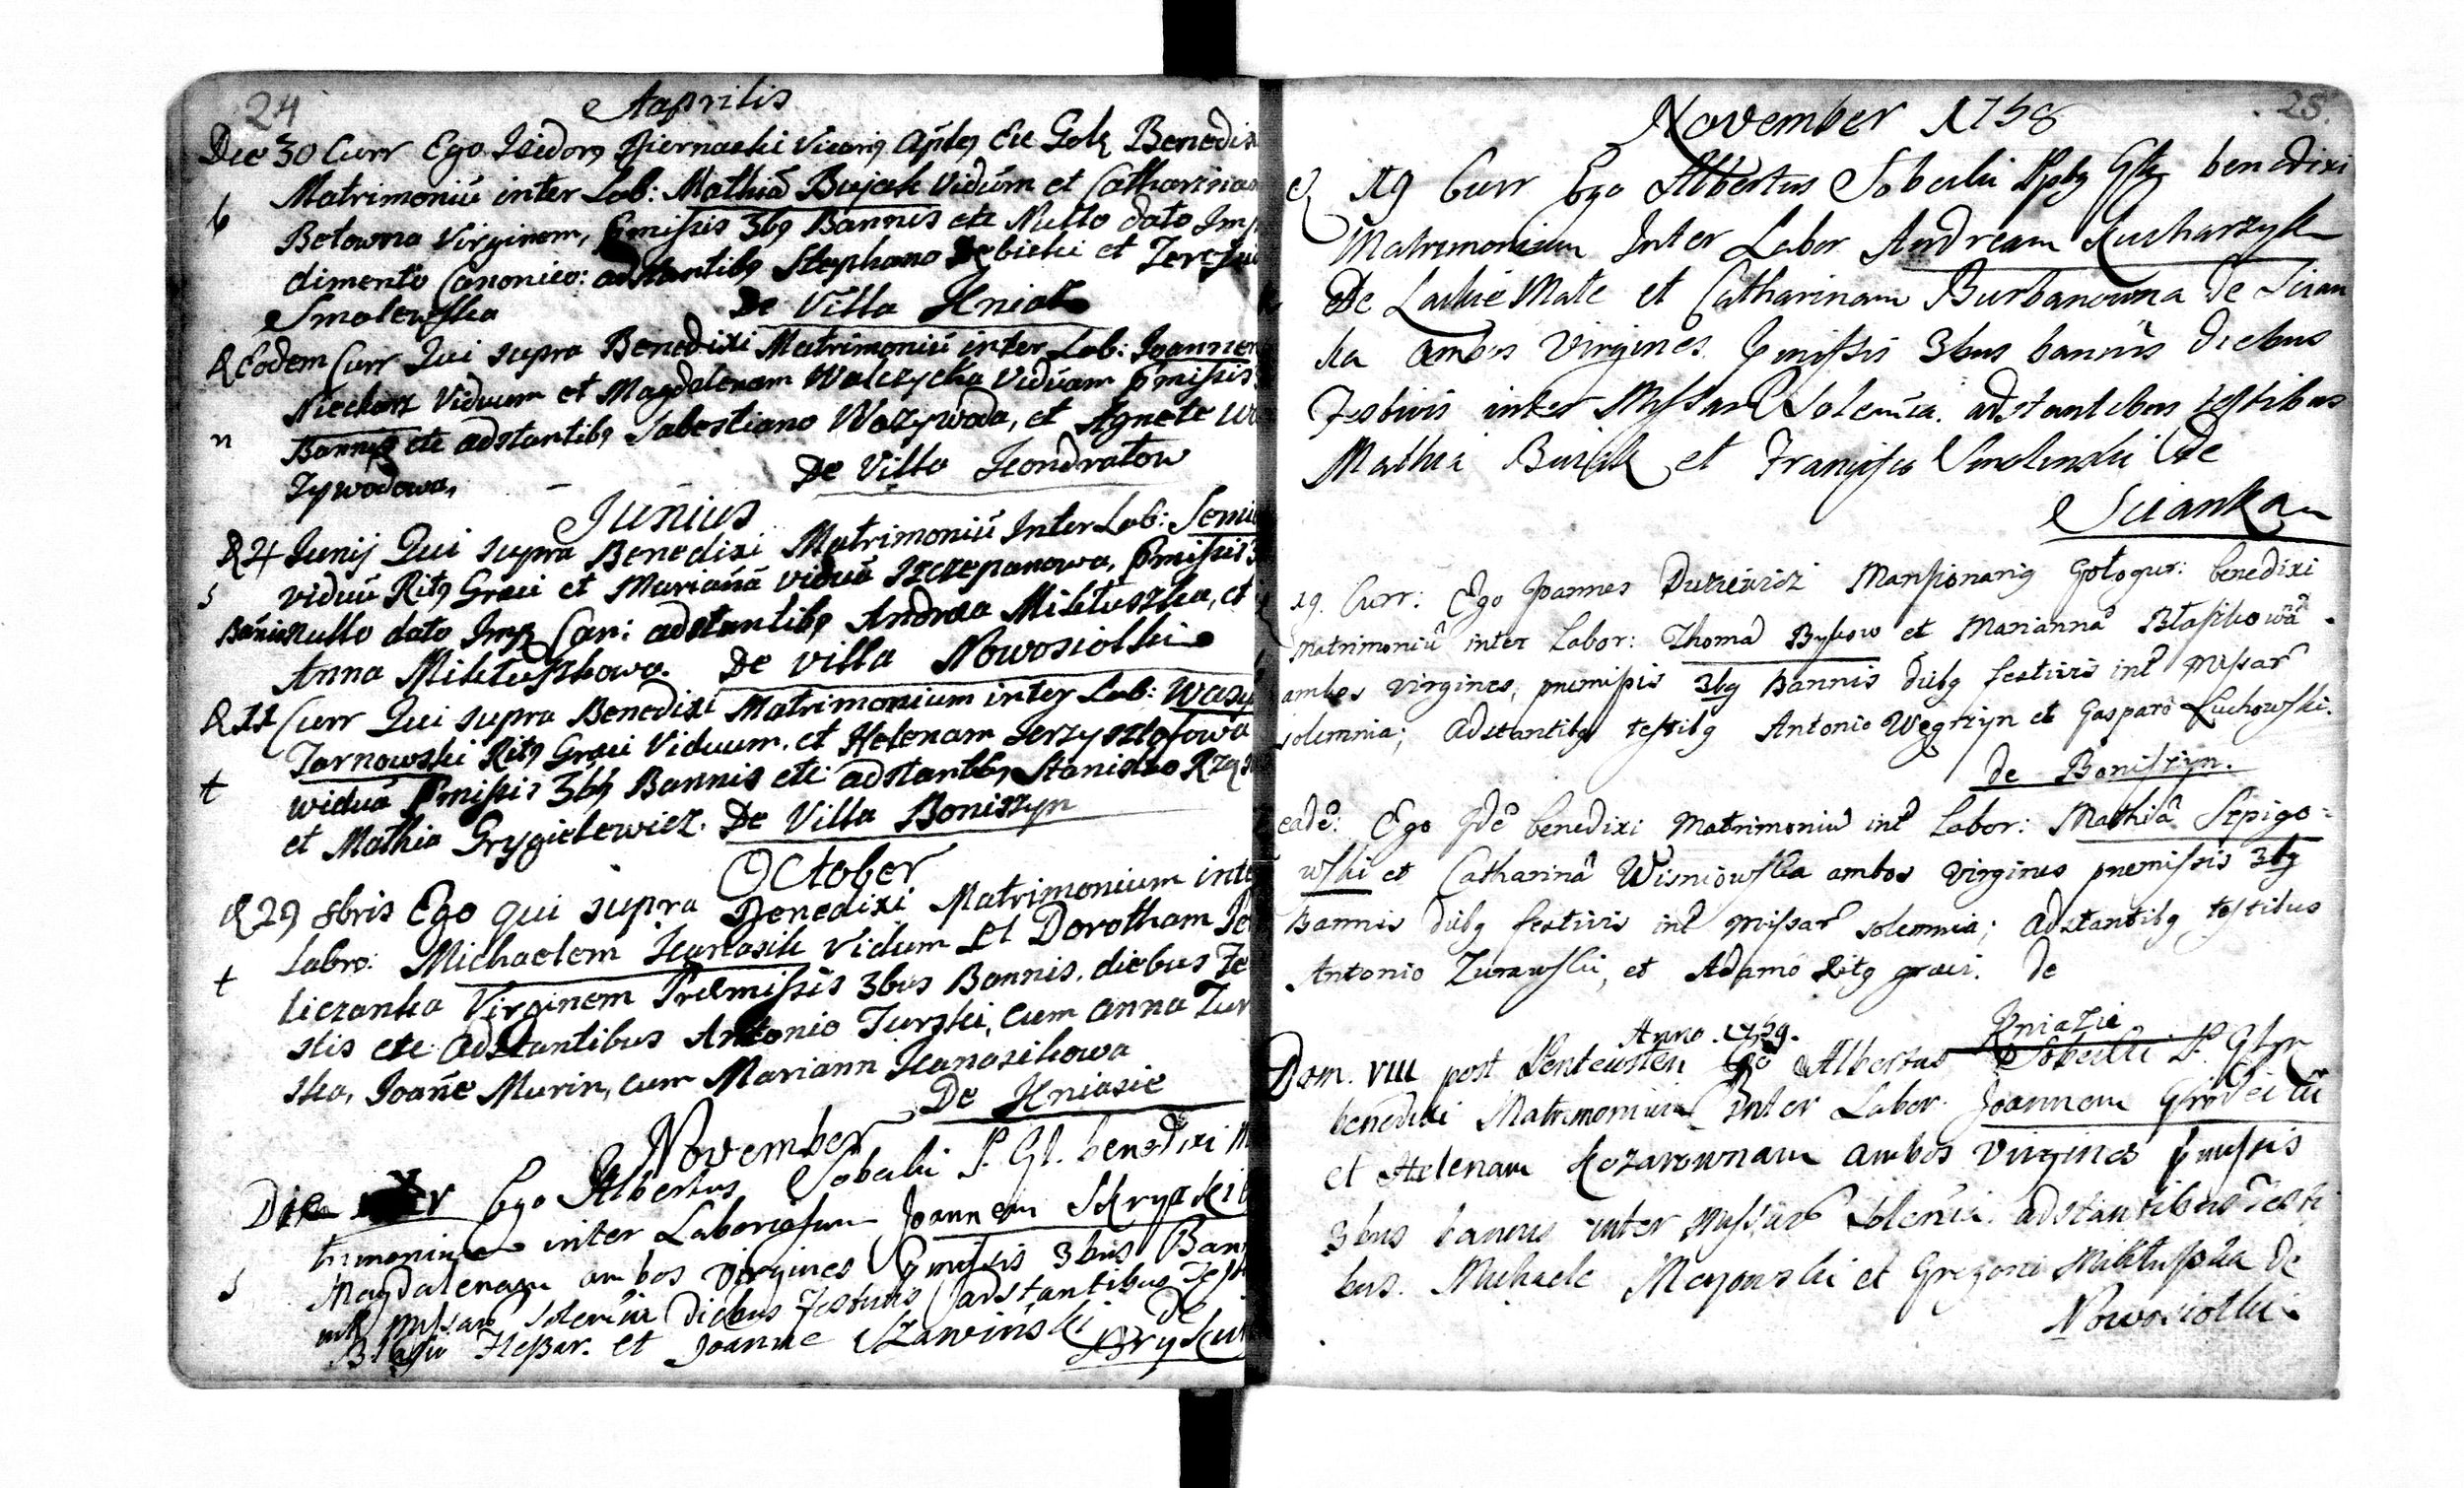 24
Aaprilis
Die 30 Curr Ego Isidorg Biernacki Vicarig Aptg Ecc Goł Benedixi
Matrimoniū inter Lab: Mathiā Bujak Viduum et Catharinam
b
Betowna Virginem, pmissis 3bg Bannis etc Nullo dato Imp
dimento Canonico: adstantibg Stephano Debicki et
Smolewska
De Villa Kniaze
& Eodem Curr Qui supra Benedixi Matrimoniū inter Lab: Joannem
Niechorz Viduum et Magdalenam Walczycka Viduam pmissis
n
Bannis etc adstantibg Sabestiano Wozywoda, et Agnete Wo
zywodowa,
De Villa Kondratow
Junius
& 4 Junij Qui supra Benedixi Matrimoniū Inter Lab:
s
viduū Ritg Graci et Mariānā viduā Szczepanowa, pmissis 3
Bānis Nullo dato Imp Can: adstantibg Andrea Mikłuszka, et
Anna Mikłuszkowa. De villa Nowosiolki
& 11 Curr Qui supra Benedixi Matrimonium inter Lab: Wasy
Tarnowski Ritg Graci Viduum. et Helenam Jerzysztofowa
t
widuā pmissis 3bg Bannis etc adstantibg Stanislao
et Mathia Grygielewicz. De Villa Boniszyn
October
& 29 8bris Ego qui supra Benedixi Matrimonium inter
Labro: Michaelem Kanasik Vidum et Dorotham
t
liczanka Virginem Præmissis 3bus Bannis. diebus Fe
stis etc Adstantibus Antonio Turski, cum anna Tur
ska, Joañe Murin, cum Mariann Kanasikowa
De Kniasie
November
Die Ego Albertus Sobecki P. Gł. benedixi M
trimonium inter Laboriosum Joannem
s
Magdalenam ambos virgines pmissis 3bus Ban
int missar solemia diebus festivis adstantibus Test
et Joanne Szawinski de
25.
November 1758
& 19 Curr Ego Albertus Sobecki benedixi
Matrimonium Inter Labor Andream Kucharzyk
De Lackie Małe et Catharinam Burbanowna de Scian
ka ambos Virgines. pmissis 3bus bannis diebus
Festivis inter Missar Solemia. adstantibus testibus
Mathia Bujak et Francisco Smolinski de
Scianka
19. Curr: Ego Joannes Manssionarig Gołogur: benedixi
Matrimoniū inter Labor: Thomā Bykow et Mariannā Błaszkowā
ambos virgines, premissis 3bg Bannis diebg festivis int missar
solemnia; Adstantibg testibg Antonio Węgrzyn et Gasparo Łuchowski.
de Boniszyn.
eadē: Ego Idē benedixi Matrimoniū int Labor: Mathiā Sępigo=
wski et Catharinā Wisniowska ambos virgines premissis 3bg
Bannis diebg festivis int missar solemnia; Adstantibg testibus
Antonio Zurawski, et Adamo Ritg graci. de
Kniazie
Anno 1759.
Dom. VIII post Pentecosten Ego Albertus Sobecki P.
benedixi Matrimonium Inter Labor. Joannem
et Helenam Kozarownam ambos virgines pmissis
3bus bannis inter Missar Solemia. adstantibus Testi
bus. Michaele Mayowski et Gregorio Mikłuszka de
Nowosiolki